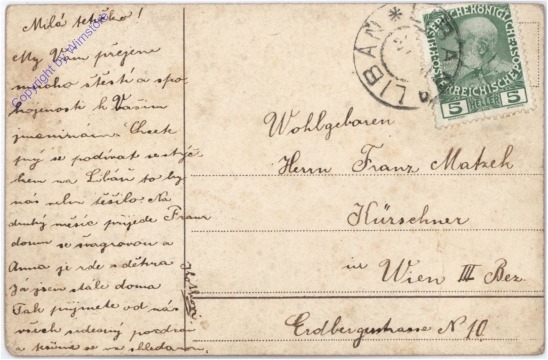 Milá tetičko!
My Vám přejeme
mnoho štěstí a spo
kojenosti k Vašim
jmeninám. Chcete
prý se podívat se strýč
kem na Libáň to by
nás velmi těšilo. Na
druhý měsíc přijede Franc
domu se švagrovou a
Anna je zde s dětma
Já jsem stále doma
Tak přijmete od nás
všech srdečný pozdrav
a těšíme se na shledanou.
Copyright by Wimstories
LIBÁŇ
KAISERLICHE KÖNIGLICHE
ÖSTERREICHISCHE POST
5 HELLER 5
Wohlgeboren
Herrn Franz Matzek
Kürschner
in Wien III Bez.
Erdbergstrasse N 10